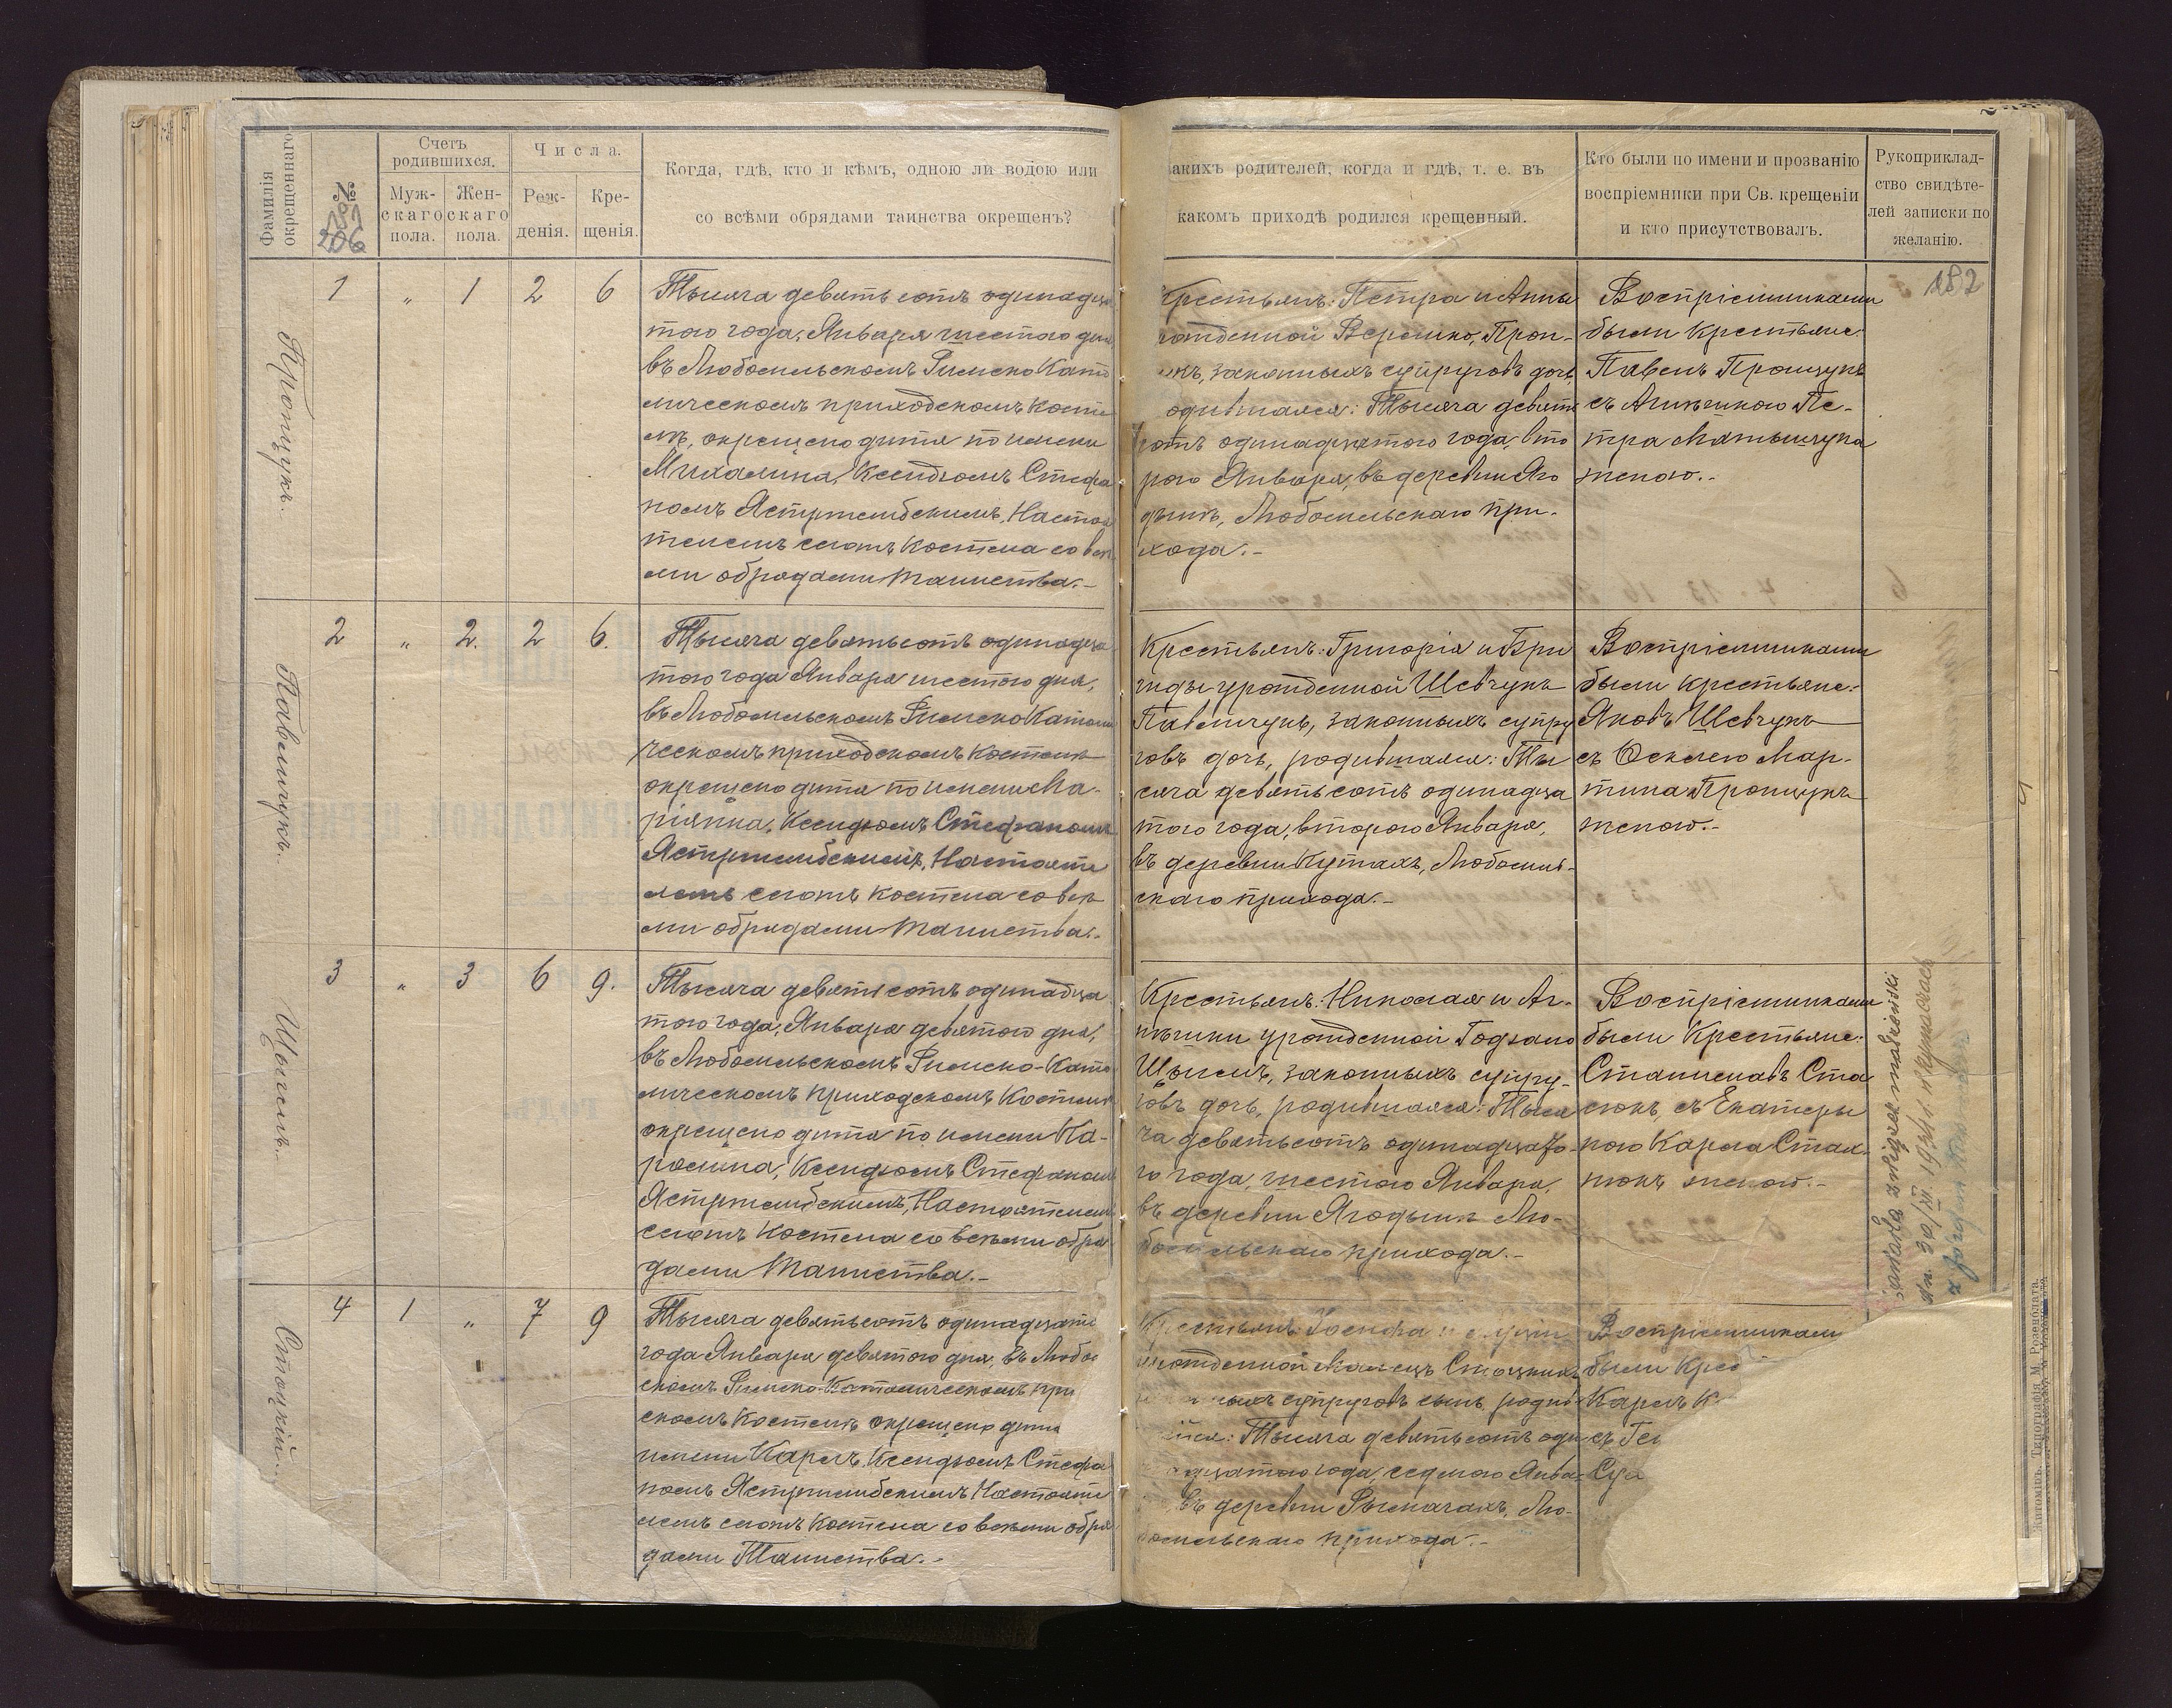 Фамилія окрещеннаго
№
181
206
Счетъ родившихся.
Муж-скаго пола.
Жен-скаго пола.
Числа.
Рож-денія.
Кре-щенія.
Когда, гдѣ, кто и кѣмъ, одною ли водою или
со всѣми обрядами таинства окрещенъ?
какихъ родителей, когда и гдѣ, т. е. въ
какомъ приходѣ родился крещенный.
Кто были по имени и прозванію
воспріемники при Св. крещеніи
и кто присутствовалъ.
Рукоприклад-
ство свидѣте-
лей записки по
желанію.
182
Прощукъ.
1 „ 1 2 6
Тысяча девятьсотъ одинадца
того года, Января шестого дня,
въ Любомльскомъ Римско Като
лическомъ приходскомъ Косте
лѣ, окрещено дитя по имени
Михалина, Ксендзомъ Стефа
номъ Ястржембскимъ, Настоя
телемъ сего Костела со всѣ
ми обрядами Таинства.-
Крестьянъ: Петра и Анны
рожденной Верешко, Прощ-
укъ, законныхъ супруговъ дочь,
родившаяся: Тысяча девять
сотъ одинадцатого года, вто
рого Января, въ деревни Яго
дынѣ, Любомльскаго при-
хода.-
Воспріемниками
были Крестьяне:
Павелъ Прощукъ
съ Агнѣшкою Пе-
тра Матыщука
женою.-
Павелчукъ.
2 „ 2. 2 6.
Тысяча девятьсотъ одинадца
того года Января шестого дня,
въ Любомльскомъ Римско Католи
ческомъ приходскомъ Костелѣ
окрещено дитя по имени Ма-
ріянна, Ксендзомъ Стефаномъ
Ястржембскимъ, Настояте
лемъ сего Костела со всѣ
ми обрядами Таинства.-
Крестьянъ: Григорія и Бри
гиды урожденной Шевчукъ
Павелчукъ, законныхъ супру
говъ дочь, родившаяся: Ты
сяча девятьсотъ одинадца
того года, второго Января,
въ деревни Кутахъ, Любомль-
скаго прихода.-
Воспріемниками
были Крестьяне:
Яковъ Шевчукъ
съ Оксеею Мар-
тина Прощукъ
женою.-
Щысль.
3 „ 3 6 9.
Тысяча девятьсотъ одинадца
того года, Января девятого дня,
въ Любомльскомъ Римско-Като
лическомъ приходскомъ Костелѣ
окрещено дитя по имени Ка-
ролина, Ксендзомъ Стефаномъ
Ястржембскимъ, Настоятелемъ
сего Костела со всѣми обря
дами Таинства.-
Крестьянъ: Николая и Аг-
нѣшки урожденной Годзало
законныхъ супру-
говъ дочь, родившаяся: Тыся
ча девятьсотъ одинадцато-
го года, шестого Января,
въ деревни Ягодынѣ Лю-
бомльскаго прихода.-
Воспріемниками
были Крестьяне:
Станиславъ Ста
сюкъ съ Екатеры
ною Карола Стах-
нюкъ женою.-
zawarła związek małżeński
dn. 30/XI 1931 r.
Стоцкій.
4 1 „ 7 9
Тысяча девятьсотъ одинадцато
года Января девятого дня, въ Любо
скомъ Римско-Католическомъ при
скомъ Костелѣ окрещено дитя
имени Каролъ, Ксендзомъ Стефа
номъ Ястржембскимъ Настояте
лемъ сего Костела со всѣми обря
дами Таинства.-
Крестьянъ: Іосифа и
рожденной
ныхъ супруговъ сынъ, родив-
шійся: Тысяча девятьсотъ оди
надцатого года, седмого Янва-
въ деревни Рымачахъ, Лю-
бомльскаго прихода.-
Воспріемниками
были Крес
Каролъ К
съ Ге
Суд
Житомiръ. Типографія М. Розенблата.